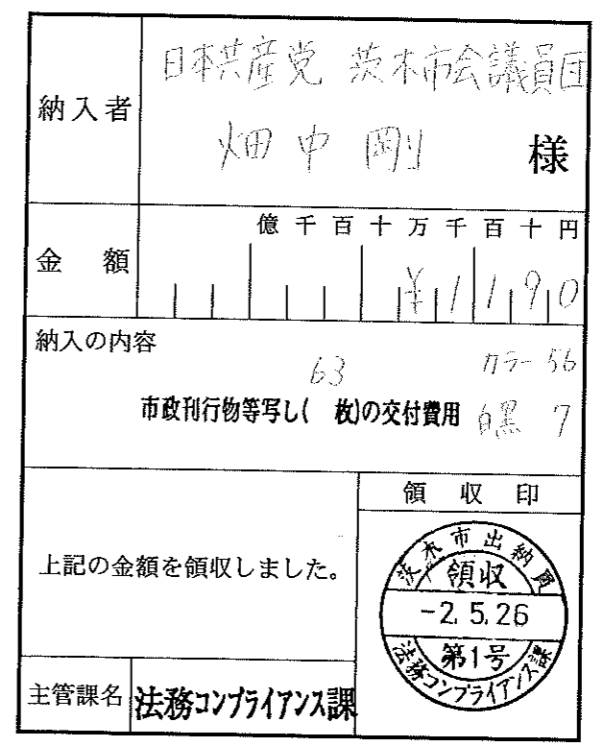 日本共産党 茨木市会議員団
納入者
畑中 剛 様
億千百十万千百十円
金額 ¥1190
納入の内容
63 カラー 56
市政刊行物等写し( 枚)の交付費用 白黒 7
領収印
上記の金額を領収しました。
茨木市出納員
領収
-2.5.26
第1号
法務コンプライアンス課
主管課名 法務コンプライアンス課